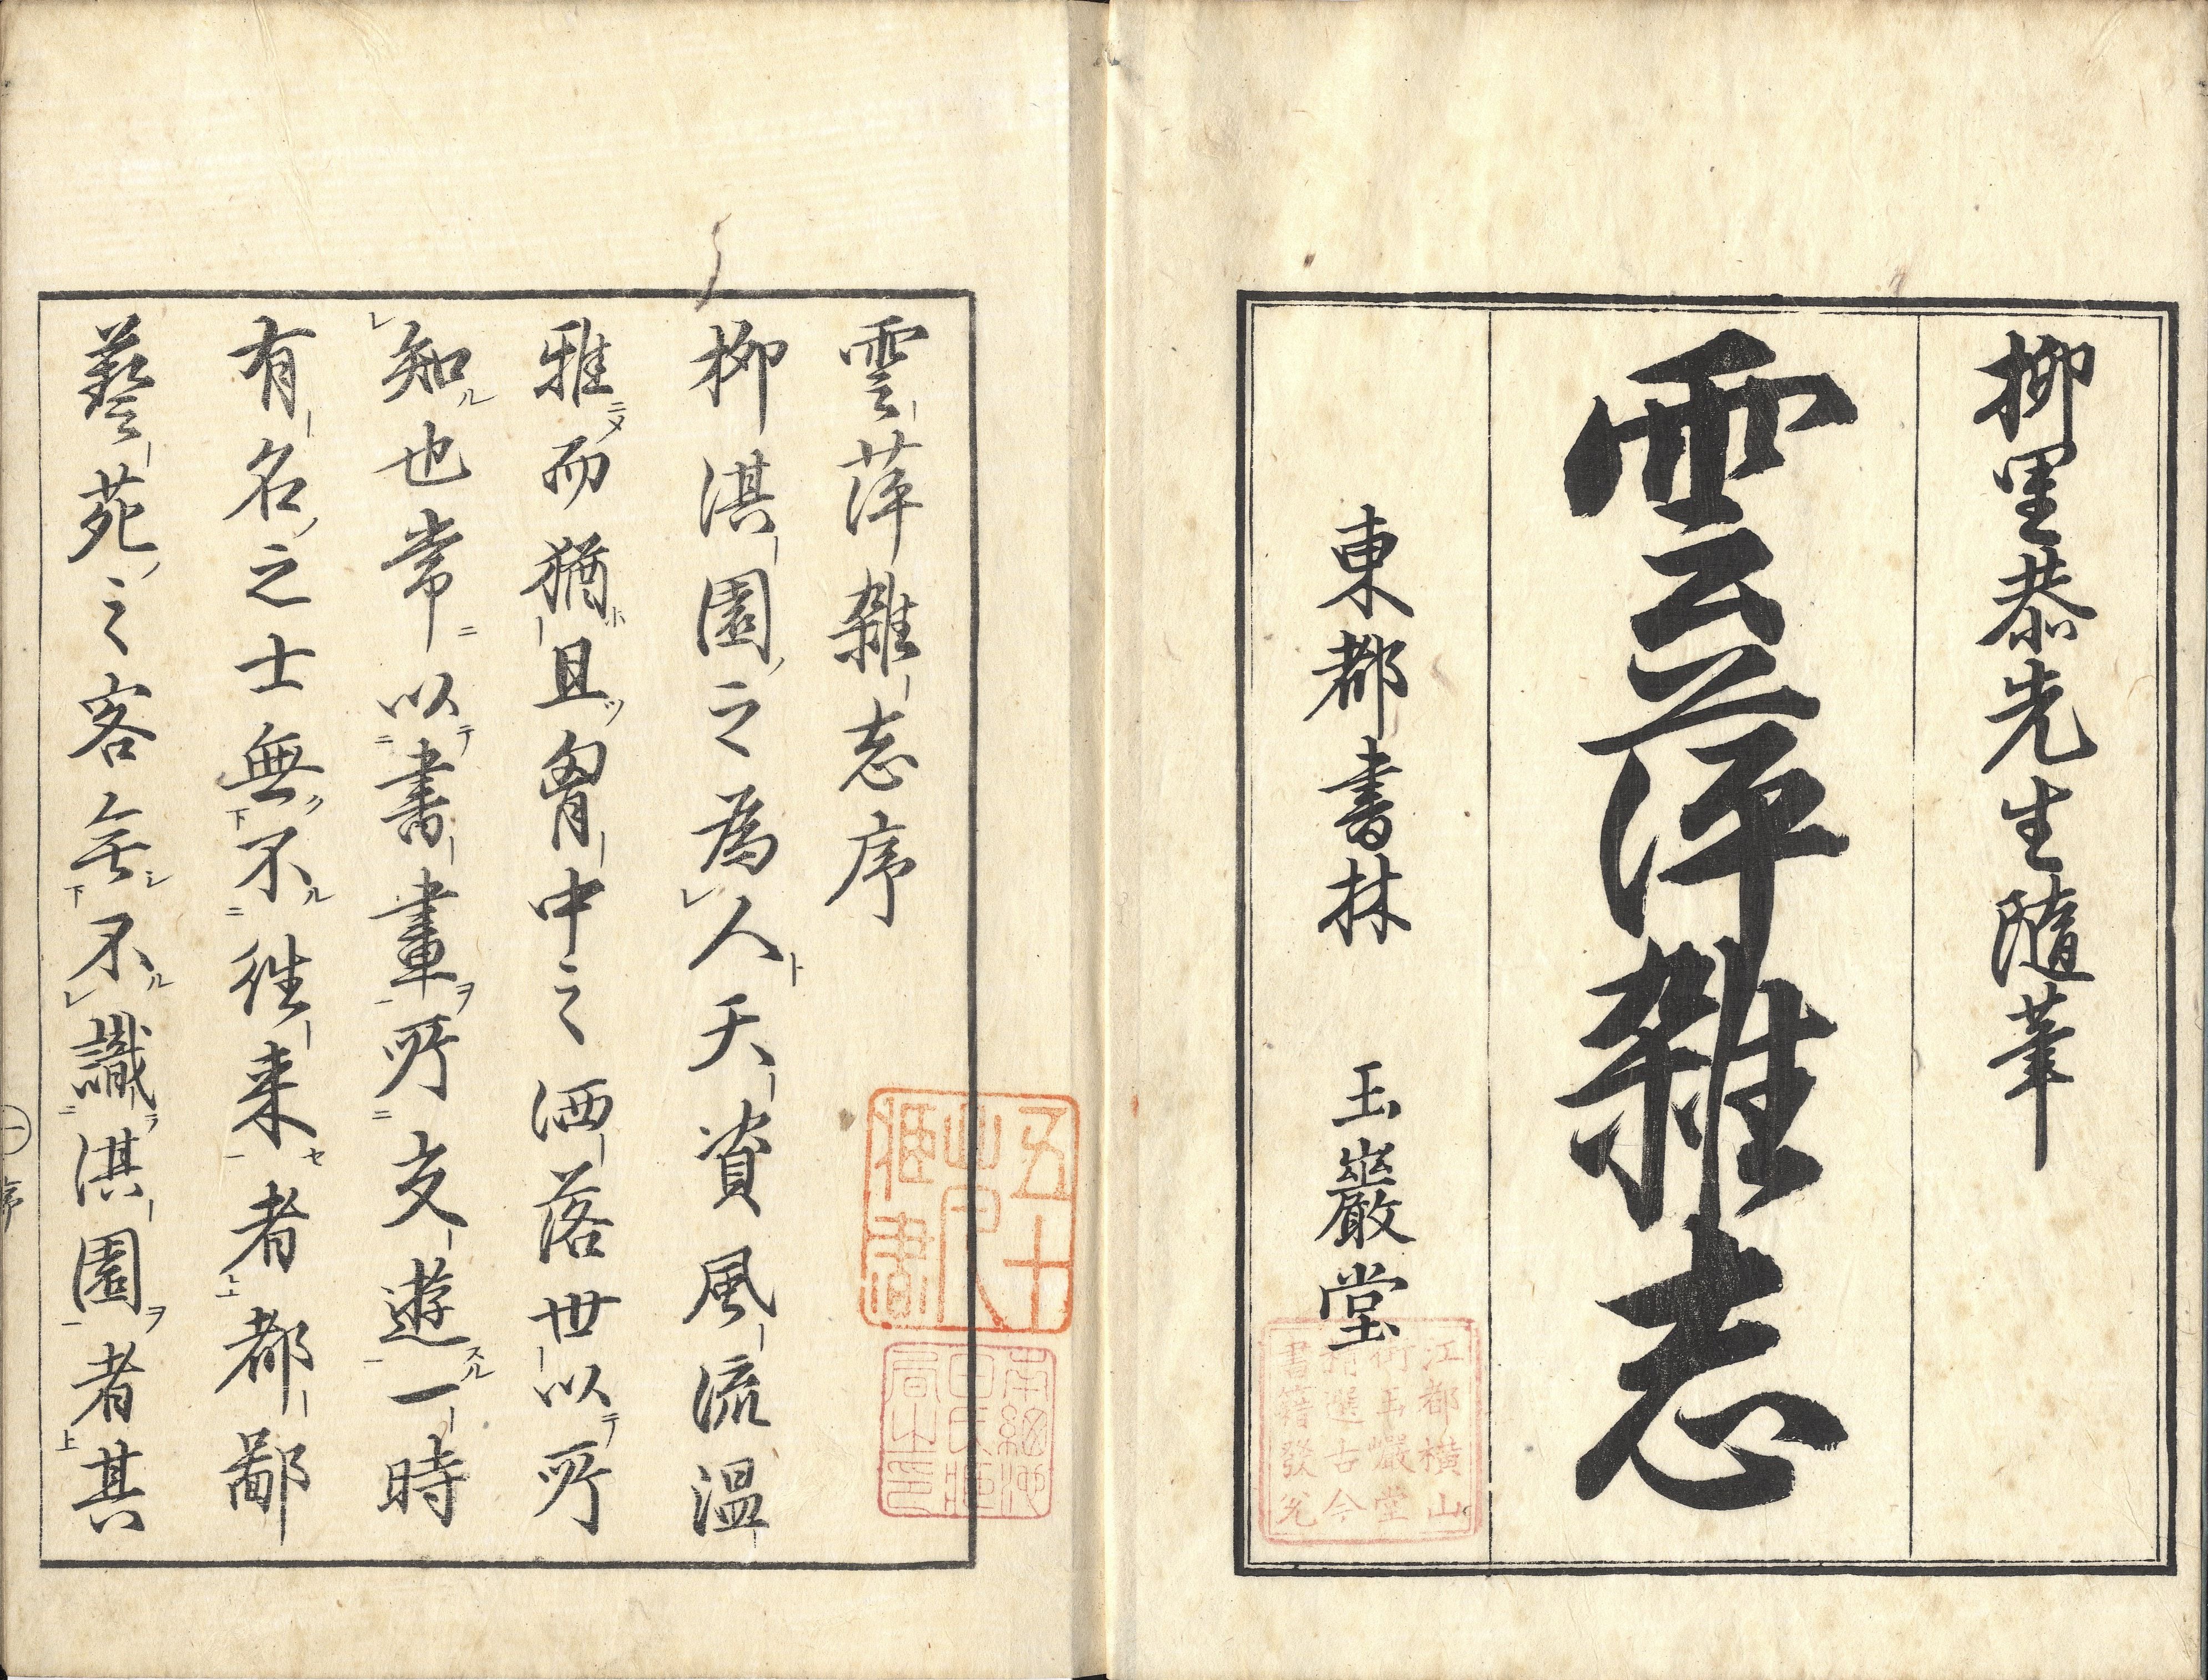 柳里恭先生隨筆
雲萍雜志
東都書林 玉巖堂
江都横山
街玉巖堂
精選古今
書籍發兌
雲萍雜志序
柳淇園之為人天資風流温
雅而猶且胷中之洒落世以所
知也常以書畫所交遊一時
有名之士無不徃来者都鄙
藝苑之客無不識淇園者其
五十
藏書
一 序